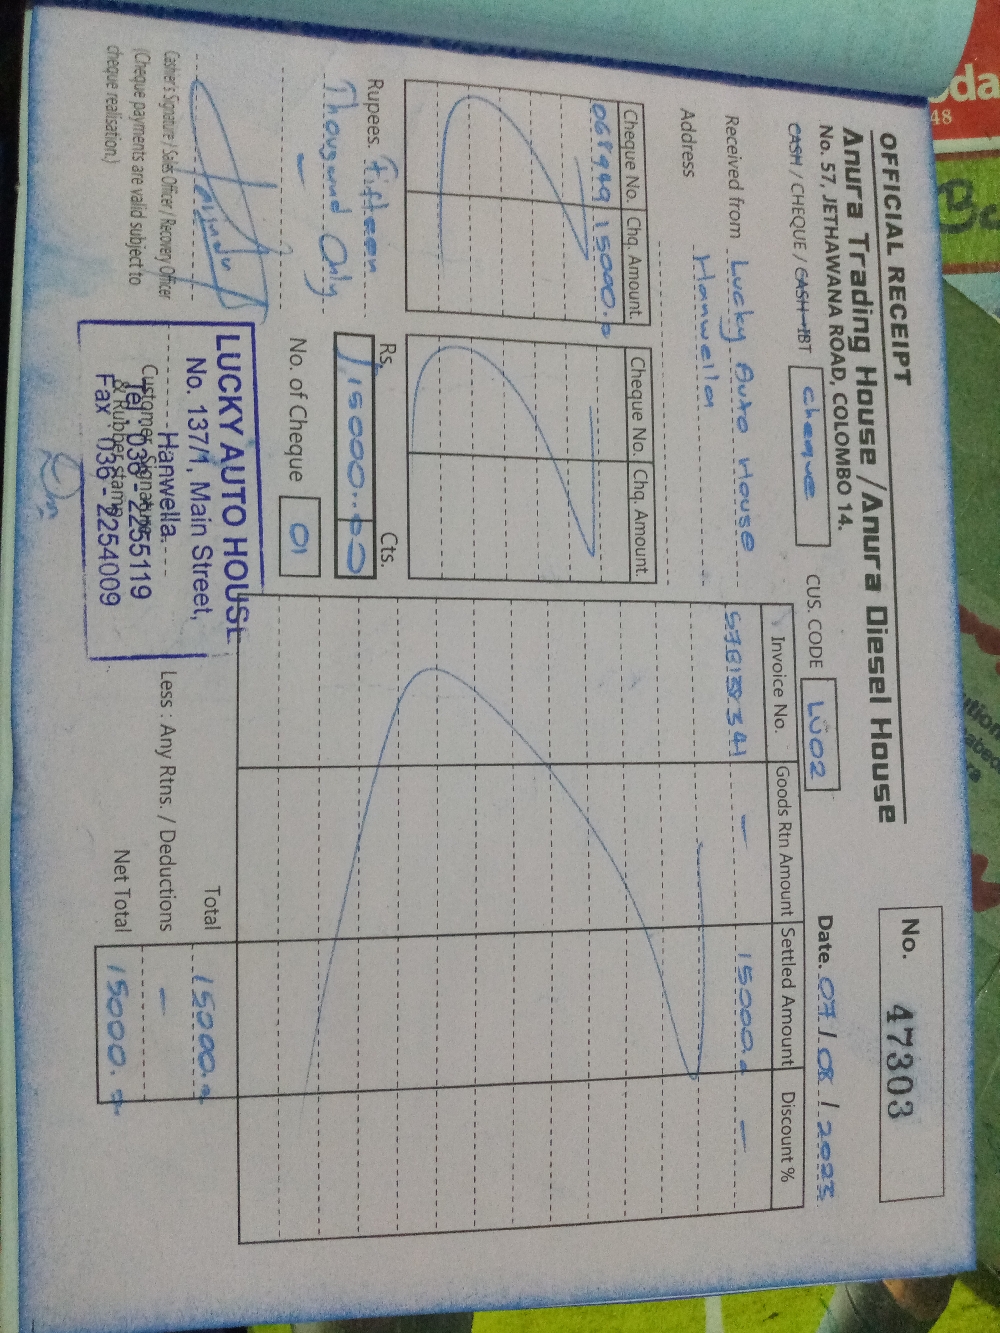 OFFICIAL RECEIPT
Anura Trading House / Anura Diesel House
No. 57, JETHAWANA ROAD, COLOMBO 14.
No. 47303
CASH / CHEQUE / CASH IBT
Cheque
CUS. CODE LU02
Date. 07 / 08 / 2023
Received from Lucky Auto House
Address Hanwella
Cheque No. Chq. Amount.
15000.
Cheque No. Chq. Amount.
Invoice No. Goods Rtn Amount Settled Amount Discount %
— 15000. —
Rupees. Fifteen
Thousand Only
Rs. Cts.
15000..00
No. of Cheque 01
Cashier's Signature / Sales Officer / Recovery Officer
(Cheque payments are valid subject to
cheque realisation.)
Customer Signature
& Rubber stamp
LUCKY AUTO HOUSE
No. 137/1, Main Street,
Hanwella.
Tel : 036 - 2255119
Fax : 036 - 2254009
Total 15000.
Less : Any Rtns. / Deductions —
Net Total 15000.
48